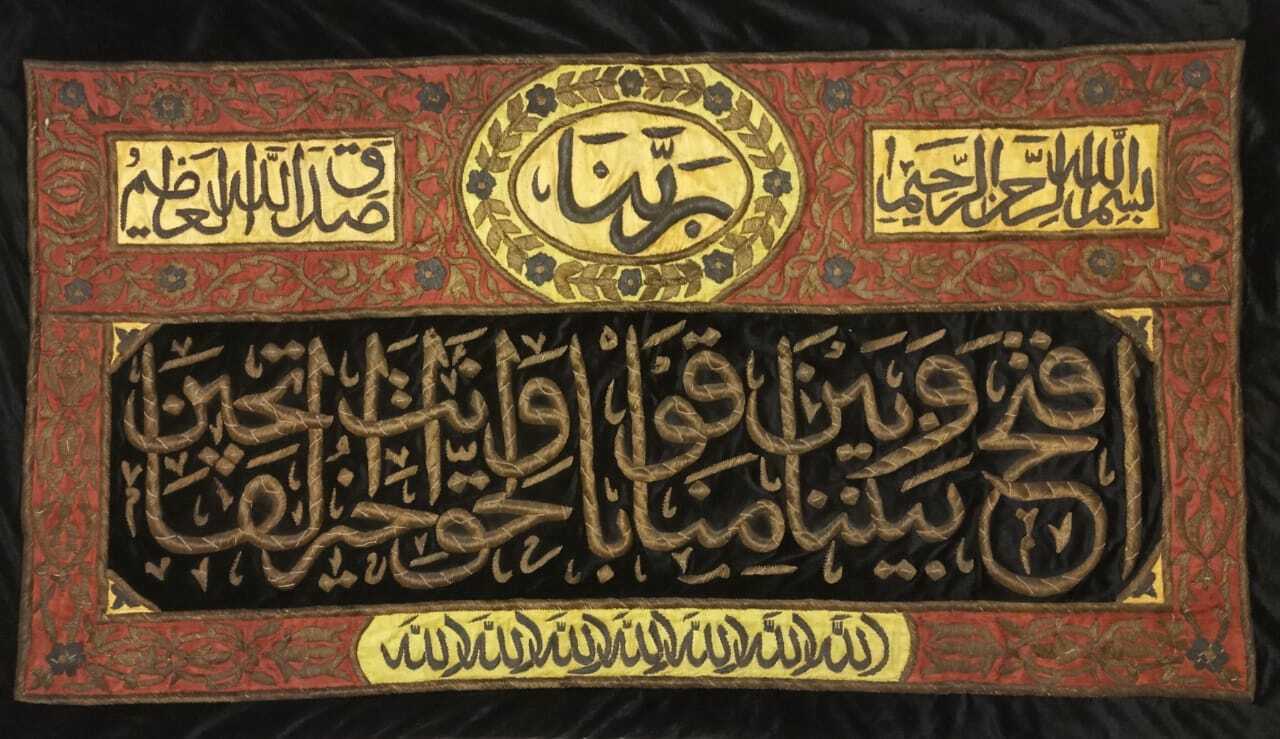 بسم الله الرحمن الرحيم
بربنا
صدق الله العظيم
افتح بيننا وبين قومنا بالحق وانت خير الفاتحين
الله الله الله الله الله الله الله